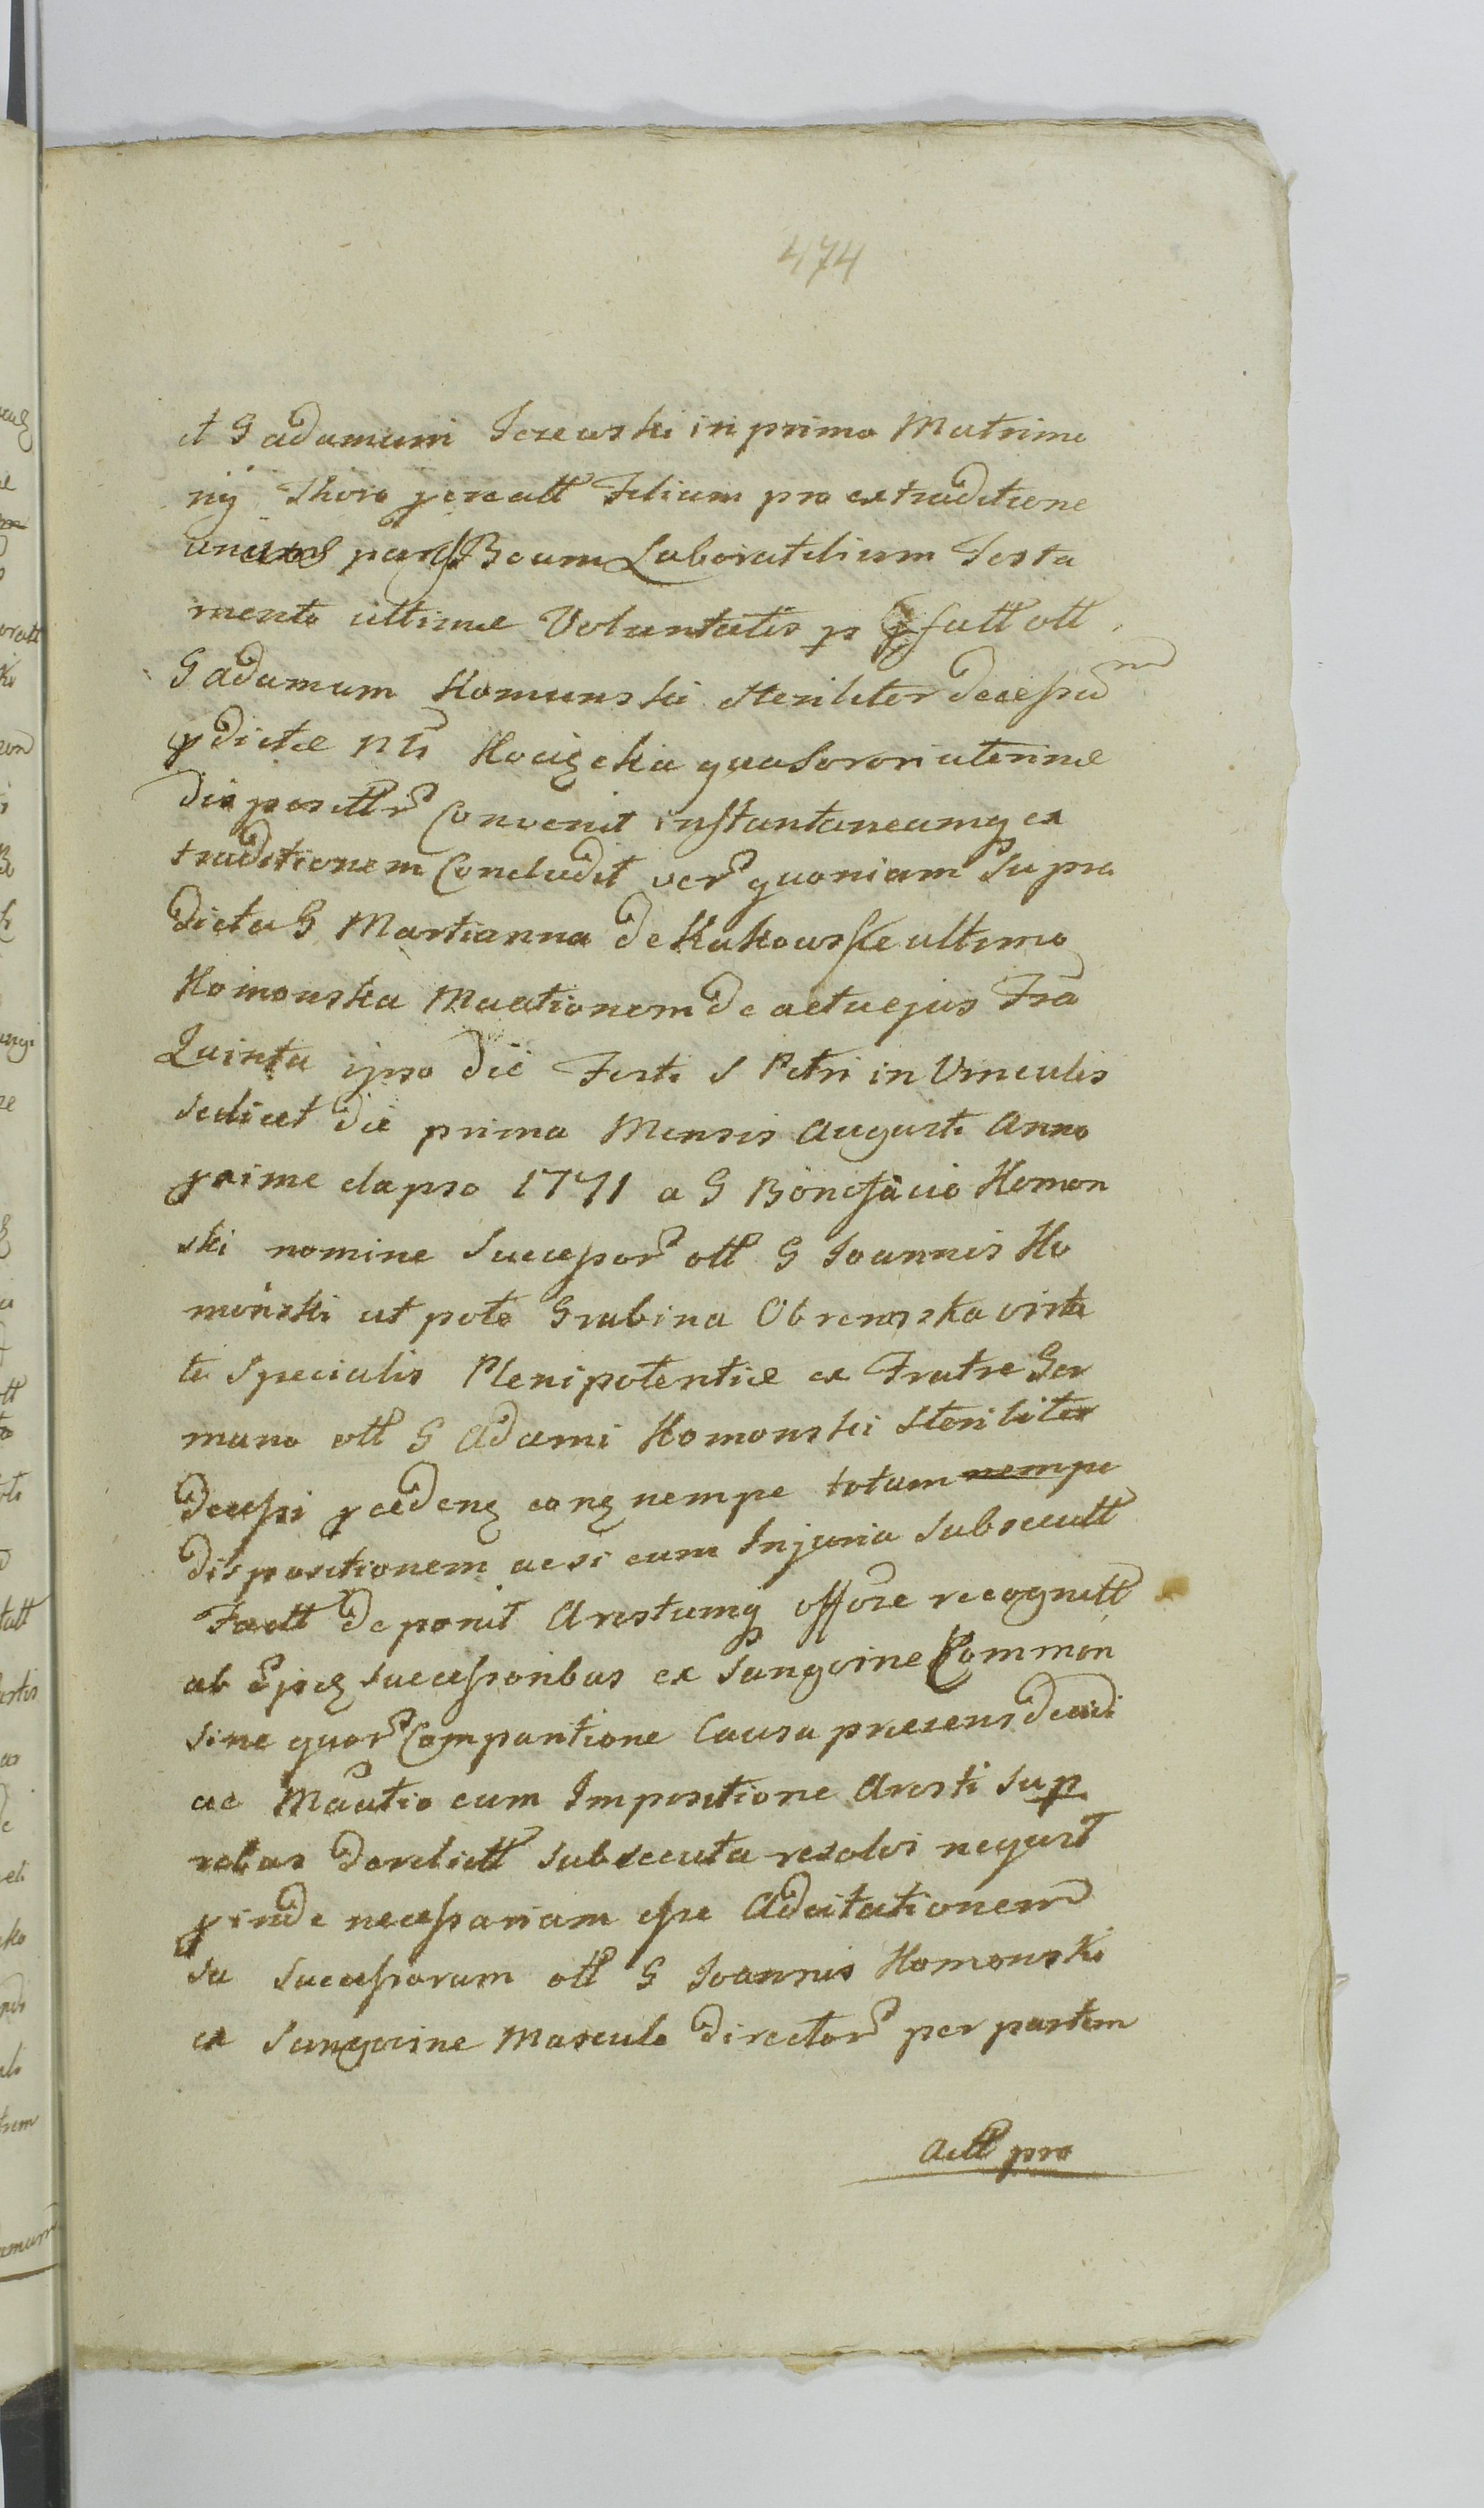 474
et G Adamum Jezewski in primo Matrimo
nij Thoro procreatt Filium pro extraditione
unius paris Boum Laboratilium Testa
mento ultimae Voluntatis p praefatt olt
G Adamum Komunski steriliter decessum
pdictae Nti qua Sorori uterinae
disposittr Convenit instantaneamq ex
traditionem Concludit verr quoniam Supra
dicta G Martianna de Kukowskie ultimo
Komonska Maationem de actu ejus Fra
Quinta ipso die Festi S Petri in Vinculis
scilicet die prima Mensis Augusti Anno
proxime elapso 1771 a G Bonifacio Komon
ski nomine Successor olt G Joannis Ko
monski ut pote Grabina Obremska virtu
te Specialis Plenipotentiae ex Fratre Ger
mano olt G Adami Komonski Steriliter
decessi pcedenq eamq nempe totam nempe
dispositionem acsi cum Injuria subsecutt
Factt deponit Arestumq offore recognitt
ab Ejusq Successoribus ex Sangvine Common
sine quor Comparitione Causa praesens decidi
ac Maatio cum Impositione Aresti sup
rebus derelictt subsecuta resolvi nequit
pinde necessariam esse Adcitationem
su Successorum olt G Joannis Komonski
ex Sangvine Masculo director per partem
actt pro